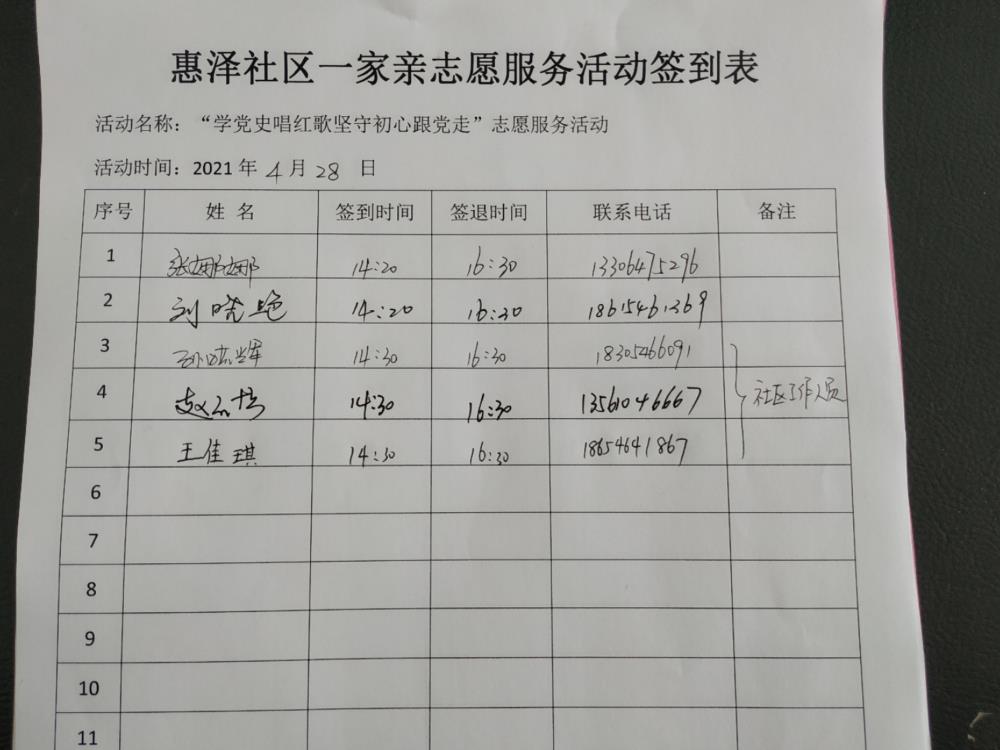 惠泽社区一家亲志愿服务活动签到表
活动名称：“学党史唱红歌坚守初心跟党走”志愿服务活动
活动时间：2021 年 4 月 28 日
序号 姓 名 签到时间 签退时间 联系电话 备注
1 张娜娜 14:20 16:30 13306475296
2 刘晓艳 14:20 16:30 18615461369
3 14:30 16:30 18305466091
4 赵 14:30 16:30 13561046667 社区工作人员
5 王佳琪 14:30 16:30 18654641867
6
7
8
9
10
11